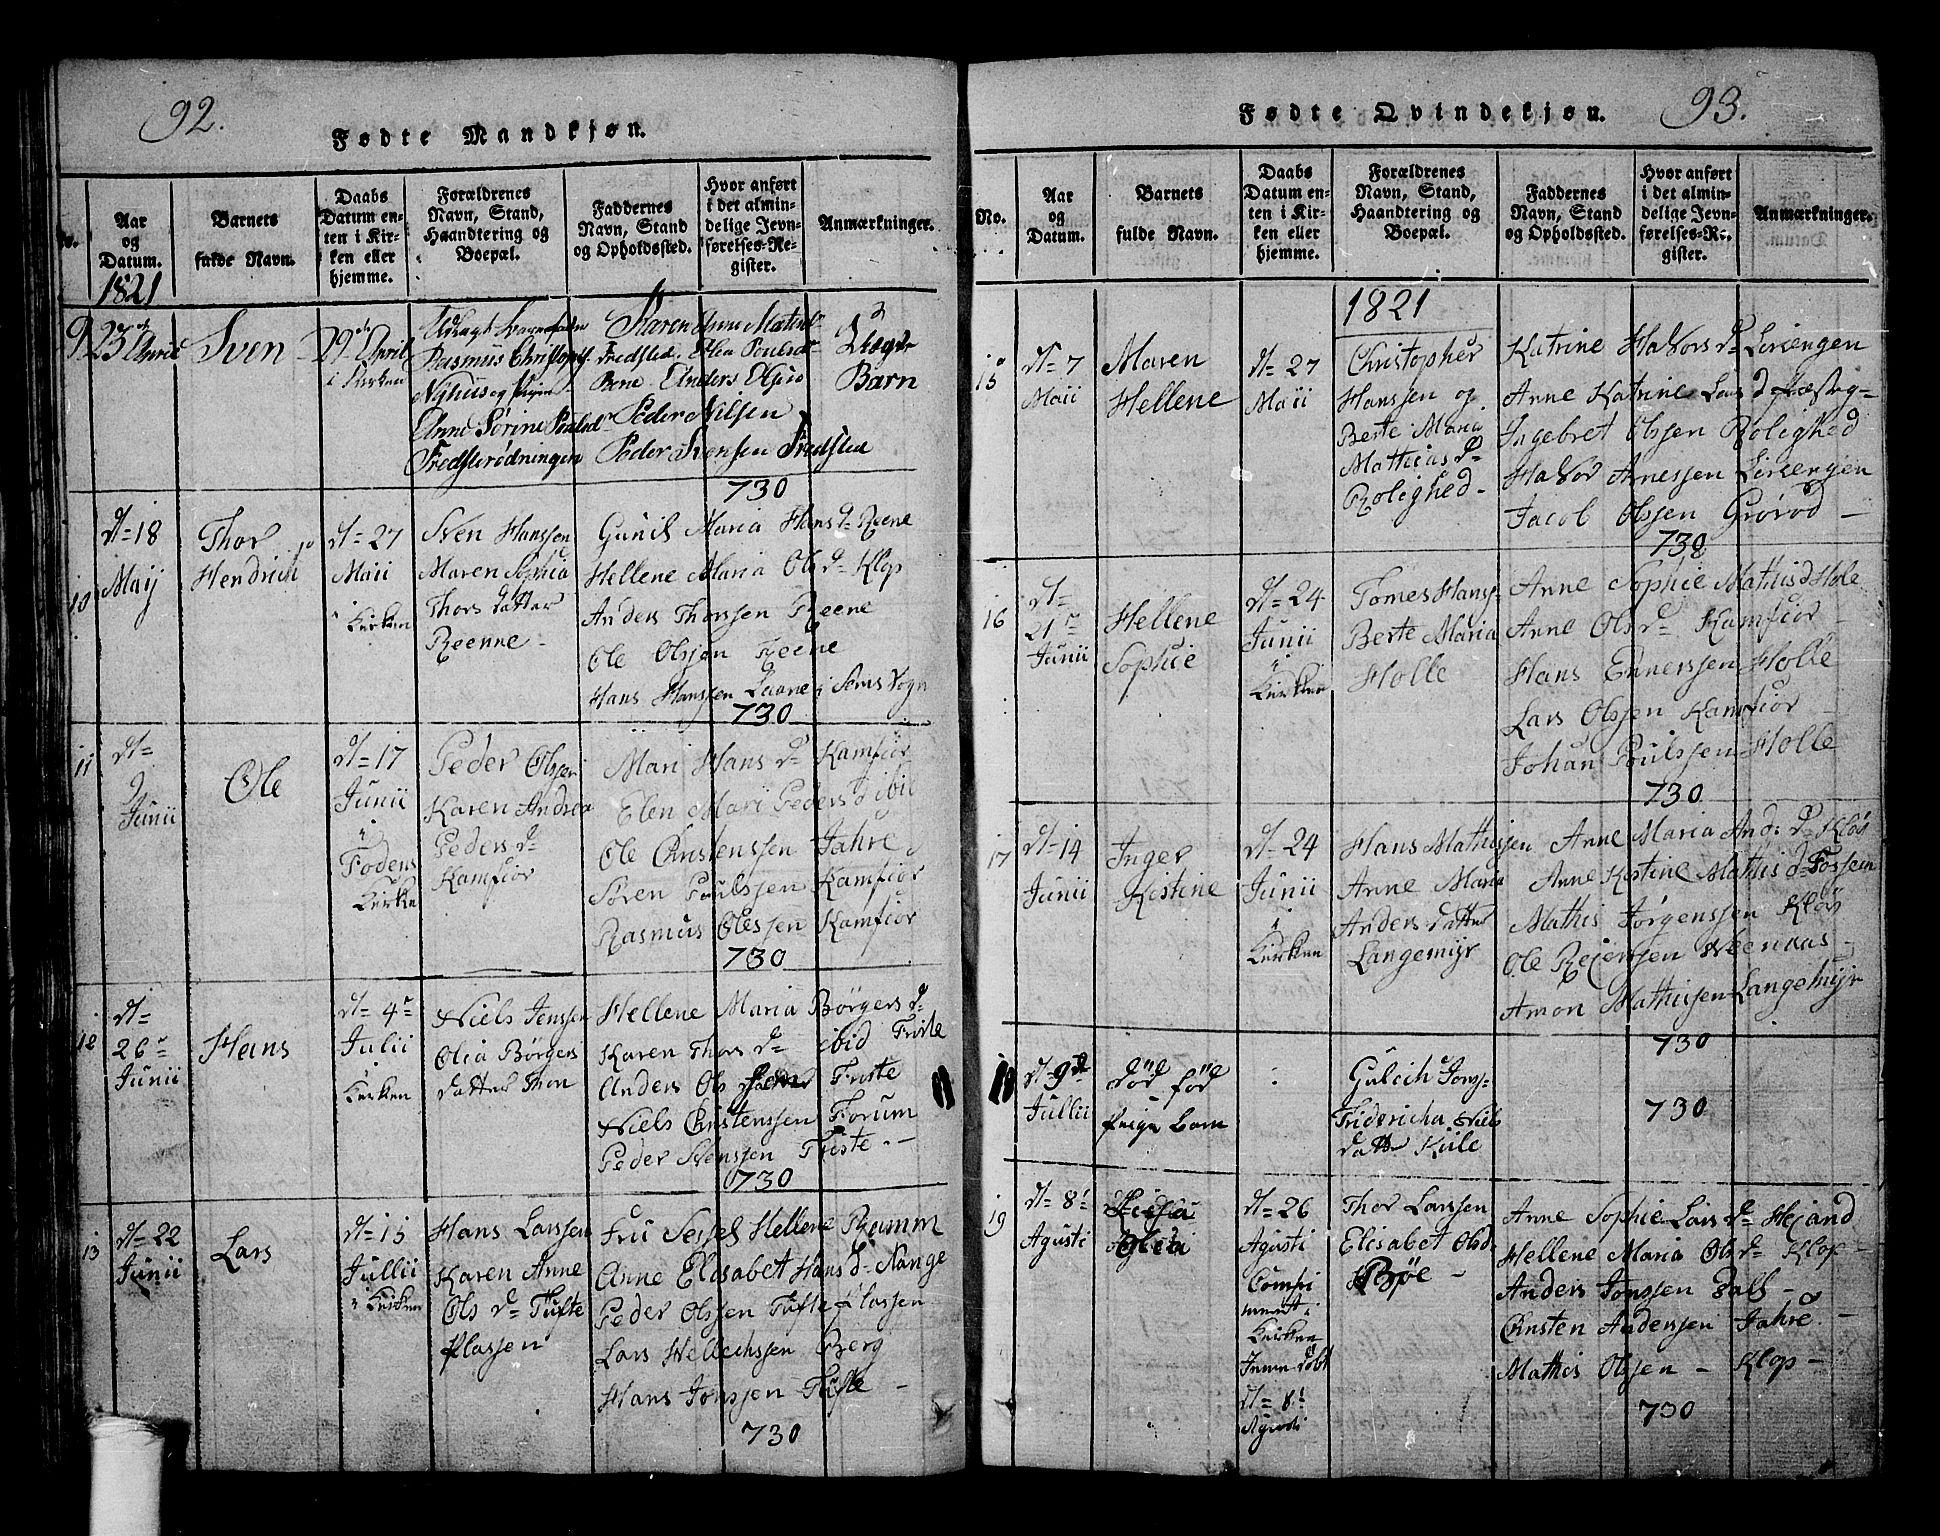 92.
Fødte Mandkjøn.
No.
Aar og Datum.
Barnets fulde Navn.
Daabs Datum enten i Kirken eller hjemme.
Forældrenes Navn, Stand, Haandtering og Boepæl.
Faddernes Navn, Stand og Opholdssted.
Hvor anført i det almindelige Jevnførelses-Register.
Anmærkninger.
1821
9
23de April
Sven
29de April
i Kirken
Rasmus Christophs.
Nyhus og Pigen
Anne Sørine Poulsd
Fredsterødningen
Karen Anne Matsd
Fredsted. Elea Poulsd
Anders Elsiö
Peder Nilsen
Peder Svensen Fredsted
730
Uægte
Barn
10
d- 18
Maij
Thor
Hendrich
d- 27
Maii
i Kirken
Sven Hanssen
Maren Sophia
Thors datter
Reenne -
Gunil Maria Hans d- Reene
Hellene Maria Ols d- Klop
Anders Thorssen Reene
Ole Olssen Reene
Hans Hanssen Laane i Sems Sogn
730
11
d-
9
Junii
Ole
d- 17
Junii
i
Fodens
Kirke
Peder Olssen
Karen Andrea
Peders d-
Kamfior
Mari Hans d- Kamfior
Elen Mari Peders d ibid
Ole Christenssen Jahre
Søren Poulssen Kamfior
Rasmus Olessen Kamfior
730
12
d-
26-
Junii
Hans
d- 4-
Julii
i
Kirken
Niels Jenssen
Olia Börgers
datter Thon
Hellene Maria Börgers d-
Karen Thors d- ibid Friste
Anders Ols Friste
Niels Christenssen Forum
Peder Svenssen Friste -
730
13
d- 22
Junii
Lars
d- 15
Jullii
i Kirken
Hans Larssen
Karen Anne
Ols d- Tufte
plassen
Fru Sessel Hellene Ramm
Anne Elisabet Hans d- Nange
Peder Olssen Tufte plassen
Lars Hellechssen Berg
Hans Jonssen Tufte -
730
93.
Fødte Qvindekjøn.
No.
Aar og Datum.
Barnets fulde Navn.
Daabs Datum enten i Kirken eller hjemme.
Forældrenes Navn, Stand, Haandtering og Boepæl.
Faddernes Navn, Stand og Opholdssted.
Hvor anført i det almindelige Jevnførelses-Register.
Anmærkninger.
1821
15
d- 7
Maii
Maren
Hellene
d- 27
Maii
Christopher
Hanssen og
Berte Maria
Mathias d-
Rolighed -
Katrine Halvors d- Lersengen
Anne Katrine Lars d
Ingebret Olssen Rolighed
Halvor Arnessen Lersengen
Jacob Olssen Grörød -
730
16
d-
21-
Junii
Hellene
Sophie
d- 24
Junii
i
Kirken
Tomes Hanss-
Berte Maria
Holle
Anne Sophie Mathis d Hole
Anne Ols d- Kamfior -
Hans Ennerssen Holle
Lars Olssen Kamfior -
Johan Poulssen Holle
730
17
d- 14
Junii
Inger
Kistine
d- 24
Junii
i
Kirken
Hans Mathissen
Anne Maria
Anders datter
Langemyr
Anne Maria And: d- Kløs
Anne Kistine Mathis d- Fossen
Mathis Jørgenssen Kløs
Ole Reierssen
Amon Mathissen Langemyr
730
d- 9de
Jullii
död föd
Pige Barn
Gulech Jons-
Fridericha Niels
datter Kiile
730
19
d- 8-
Agusti
Olea
d- 26
Agusti
Comfri
ment i
Kirken
hiemmedøbt
d- 8-
Agusti
Thor Larssen
Elisabet Olsd
Bøe -
Anne Sophie Lars d- Hejand
Hellene Maria Ols d- Klop -
Anders Jonssen Fals -
Christen Anderssen Jahre -
Mathis Olssen - Klop -
730